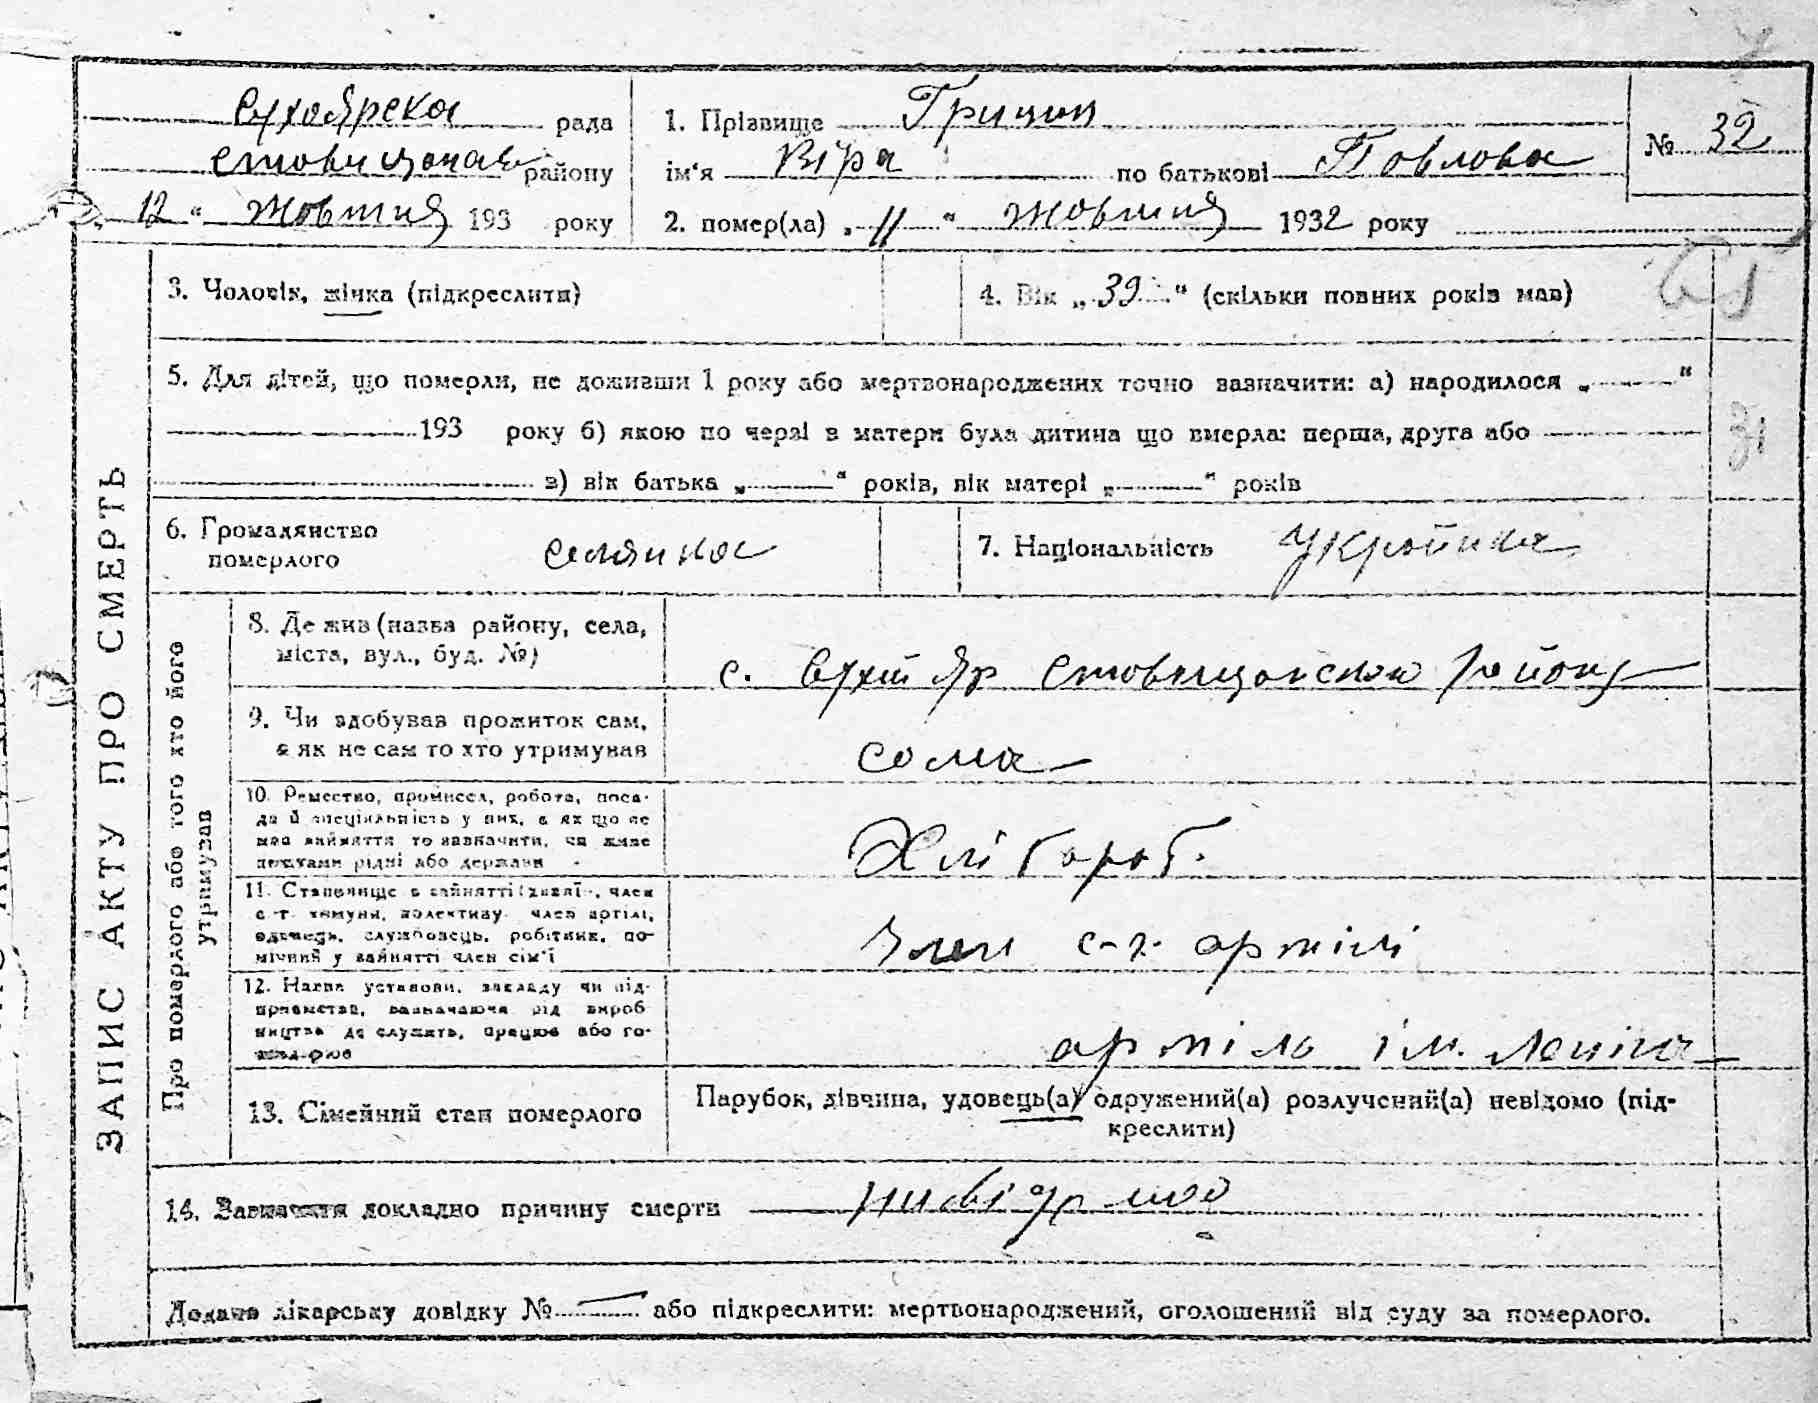 Сухоярська рада
Ставищанськ району
„12“ жовтня 193 року
1. Прізвище Грицюк
ім'я Віра по батькові Павлова
№ 32
2. помер(ла) „11“ жовтня 1932 року
3. Чоловік, жінка (підкреслити)
4. Вік „39“ (скільки повних років мав)
5. Для дітей, що померли, не доживши 1 року або мертвонароджених точно зазначити: а) народилося „ “
193 року б) якою по черзі в матери була дитина що вмерла: перша, друга або
в) вік батька „ “ років, вік матері „ “ років
31
6. Громадянство
померлого
селянка
7. Національність Українка
ЗАПИС АКТУ ПРО СМЕРТЬ
Про померлого або того хто його
утримував
8. Де жив (назва району, села,
міста, вул., буд. №)
с. Сухий Яр Ставищанского району
9. Чи здобував прожиток сам,
а як не сам то хто утримував
сама
10. Ремество, промисел, робота, поса-
да й спеціяльність у них, а як що не
мав зайняття то зазначити, чи живе
коштами рідні або держави
Хлібороб.
11. Становище в зайнятті (хазяї, член
с-г. комуни, колективу член артілі,
одинець, службовець, робітник, по-
мічний у зайнятті член сім'ї
Член с-г. артілі
12. Назва установи, закладу чи під-
приємства, зазначаючи рід вироб-
ництва де служить, працює або го-
артіль ім. Леніна
13. Сімейний стан померлого
Парубок, дівчина, удовець(а) одружений(а) розлучений(а) невідомо (під-
креслити)
14. Зазначити докладно причину смерти невідомо
Додано лікарську довідку № або підкреслити: мертвонароджений, оголошений від суду за померлого.